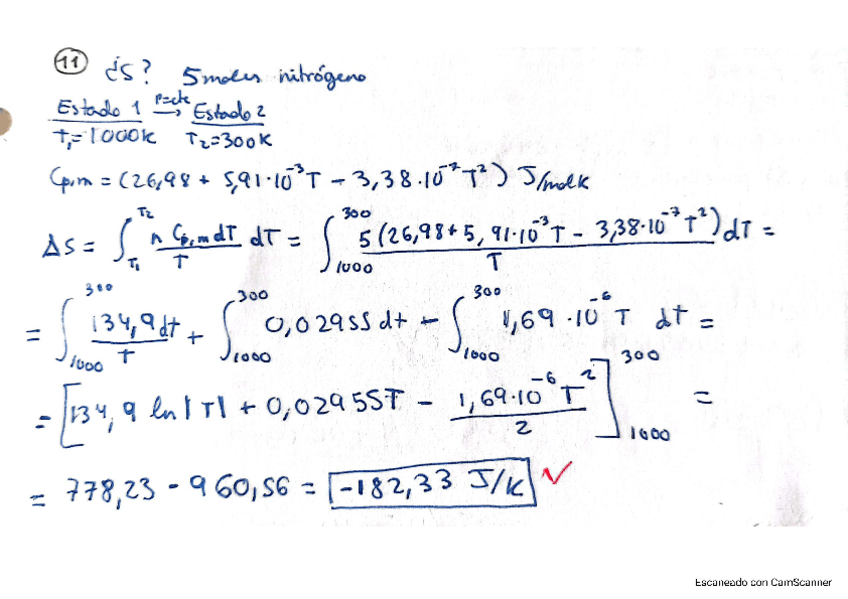 11 ¿S? 5 moles nitrógeno
Estado 1 P=cte → Estado 2
T₁=1000K T₂=300K
Cp,m = (26,98 + 5,91·10⁻³T − 3,38·10⁻⁷T²) J/molK
ΔS = ∫_{T₁}^{T₂} n Cp,m dT / T dT = ∫_{1000}^{300} 5(26,98+5,91·10⁻³T − 3,38·10⁻⁷T²) / T dT =
= ∫_{1000}^{300} 134,9 dt / T + ∫_{1000}^{300} 0,02955 dt − ∫_{1000}^{300} 1,69·10⁻⁶ T dt =
= [134,9 ln|T| + 0,02955T − 1,69·10⁻⁶T² / 2]_{1000}^{300} =
= 778,23 - 960,56 = -182,33 J/K ✓
Escaneado con CamScanner